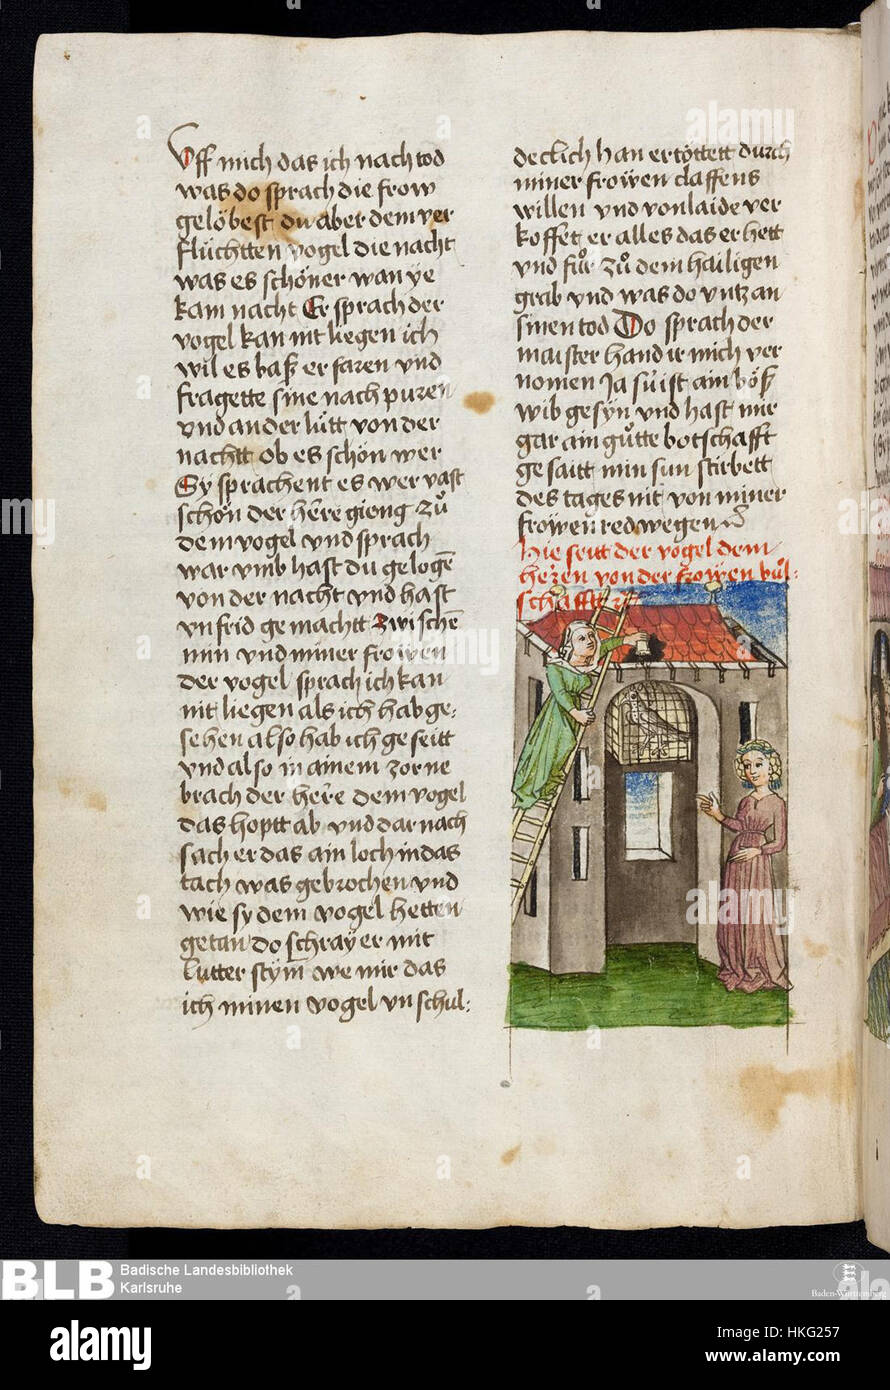 Uff mich das ich nach tod
was do sprach die frow
gelöbest du aber dem ver
flüchtten vogel die nacht
was es schöner wan ye
kam nacht Er sprach der
vogel kan nit liegen ich
wil es baß er faren vnd
fragette sine nach puren
vnd ander lütt von der
nachtt ob es schön wer
Sy sprachent es wer vast
schön der here gieng zuͦ
dem vogel vnd sprach
war vmb hast du gelogē
von der nacht vnd hast
vnfrid gemachtt zwischē
min vnd miner frowen
der vogel sprach ich kan
nit liegen als ich hab ge:
sehen also hab ich geseitt
vnd also in ainem zorne
brach der here dem vogel
das hoptt ab vnd dar nach
sach er das ain loch in das
tach was gebrochen vnd
wie sy dem vogel hetten
getan do schray er mit
lutter stym we mir das
ich minen vogel vnschul:
declich han ertöttett durch
miner frowen claffens
willen vnd von laide ver
koffet er alles das er hett
vnd fuͦr zuͦ dem hailigen
grab vnd was do vntz an
sinen tod Do sprach der
maister hand ir mich ver
nomen Ja su ist ain böß
wib gesyn vnd hast mir
gar ain guͦtte botschafft
gesaitt min sun stirbett
des tages nit von miner
frowen red wegen
hie seitt der vogel dem
heren von der frowen buͦl:
schafftt
BLB
Badische Landesbibliothek
Karlsruhe
Baden-Württemberg
alamy
Image ID: HKG257
www.alamy.com